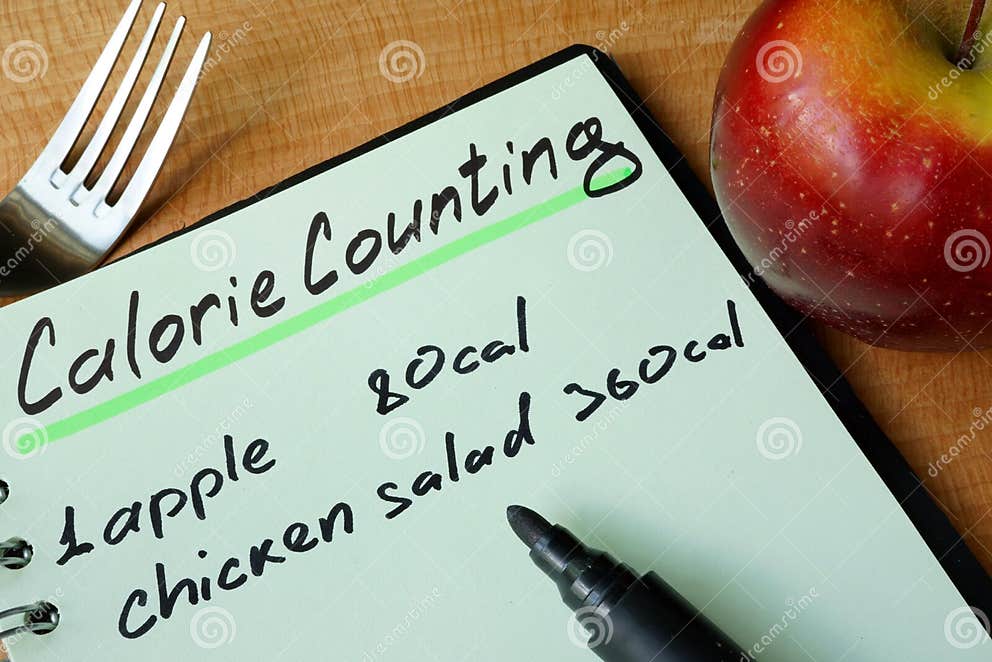 Calorie Counting
1 apple 80cal
chicken salad 360cal
dreamstime